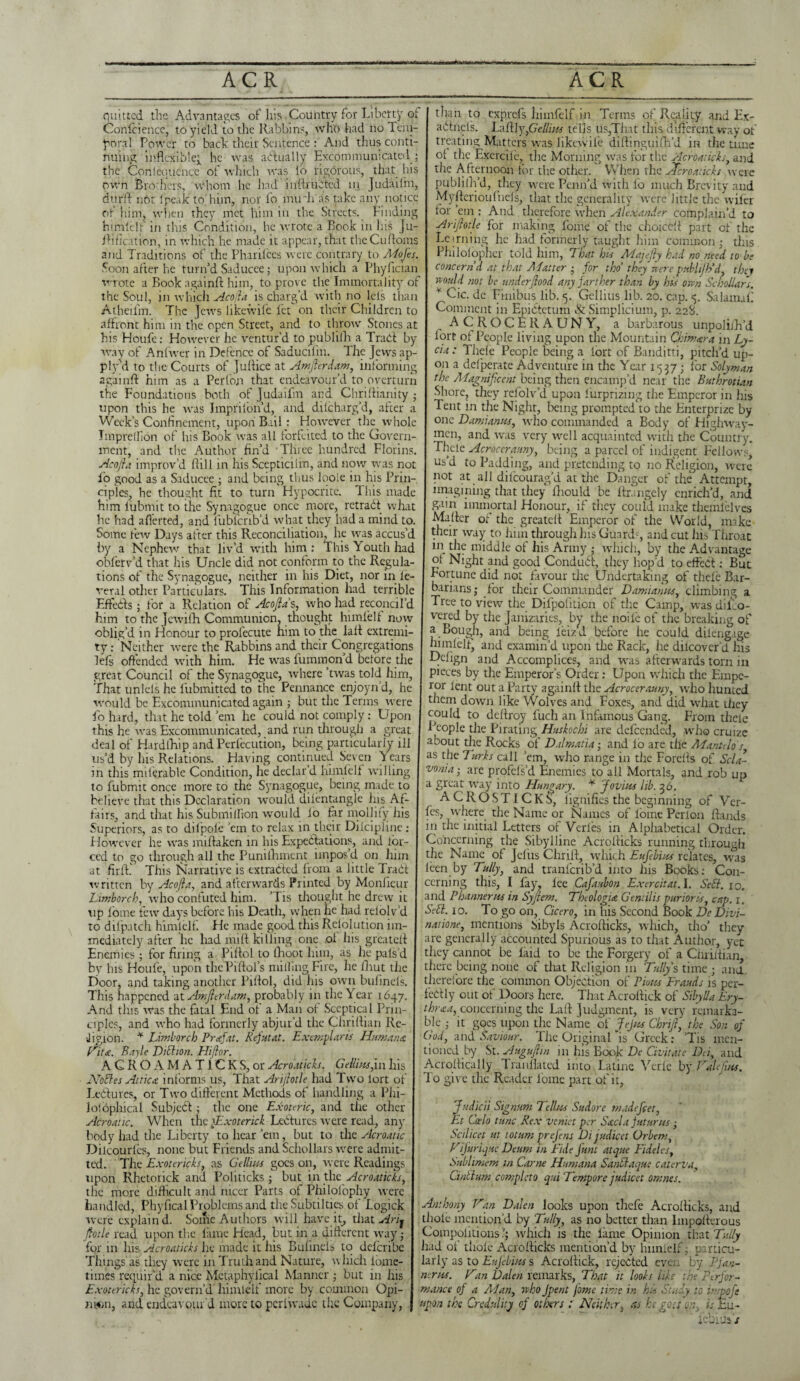 ACR
quitted the Advantages of his Country for Liberty of
Conſcience, to yield to the Rabbins, who had no Tem-
poral Power to back their Sentence: And thus conti-
nuing inflexible, he was actually Excommunicated;
the Conſequence of which was ſo rigorous, that his
own Brothers, whom he had inſtructed in Judaiſm,
durſt not ſpeak to him, nor ſo much as take any notice
of him, when they met him in the Streets. Finding
himſelf in this Condition, he wrote a Book in his Ju-
ſtification, in which he made it appear, that the Cuſtoms
and Traditions of the Phariſees were contrary to Moſes.
Soon after he turn'd Saducee; upon which a Phyſician
wrote a Book againſt him, to prove the Immortality of
the Soul, in which Acoſta is charg'd with no leſs than
Atheiſm. The Jews likewiſe ſet on their Children to
affront him in the open Street, and to throw Stones at
his Houſe: However he ventur'd to publiſh a Tract by
way of Anſwer in Defence of Saduciſm. The Jews ap-
ply'd to the Courts of Juſtice at Amſterdam, informing
againſt him as a Perſon that endeavour'd to overturn
the Foundations both of Judaiſm and Chriſtianity;
upon this he was Impriſon'd, and diſcharg'd, after a
Week's Confinement, upon Bail: However the whole
Impreſſion of his Book was all forfeited to the Govern-
ment, and the Author fin'd Three hundred Florins.
Acoſta improv'd ſtill in his Scepticiſm, and now was not
ſo good as a Saducee; and being thus looſe in his Prin-
ciples, he thought fit to turn Hypocrite. This made
him ſubmit to the Synagogue once more, retract what
he had aſſerted, and ſubſcrib'd what they had a mind to.
Some few Days after this Reconciliation, he was accus'd
by a Nephew that liv'd with him: This Youth had
obſerv'd that his Uncle did not conform to the Regula-
tions of the Synagogue, neither in his Diet, nor in ſe-
veral other Particulars. This Information had terrible
Effects; for a Relation of Acoſta's, who had reconcil'd
him to the Jewiſh Communion, thought himſelf now
oblig'd in Honour to proſecute him to the laſt extremi-
ty: Neither were the Rabbins and their Congregations
leſs offended with him. He was ſummon'd before the
great Council of the Synagogue, where 'twas told him,
That unleſs he ſubmitted to the Pennance enjoyn'd, he
would be Excommunicated again; but the Terms were
ſo hard, that he told 'em he could not comply: Upon
this he was Excommunicated, and run through a great
deal of Hardſhip and Perſecution, being particularly ill
us'd by his Relations. Having continued Seven Years
in this miſerable Condition, he declar'd himſelf willing
to ſubmit once more to the Synagogue, being made to
believe that this Declaration would diſentangle his Af-
fairs, and that his Submiſſion would ſo far mollify his
Superiors, as to diſpoſe 'em to relax in their Diſcipline:
However he was miſtaken in his Expectations, and for-
ced to go through all the Puniſhment impos'd on him
at firſt. This Narrative is extracted from a little Tract
written by Acoſta, and afterwards Printed by Monſieur
Limborch, who confuted him. 'Tis thought he drew it
up ſome few days before his Death, when he had reſolv'd
to diſpatch himſelf. He made good this Reſolution im-
mediately after he had miſt killing one of his greateſt
Enemies; for firing a Piſtol to ſhoot him, as he paſs'd
by his Houſe, upon the Piſtol's miſſing Fire, he ſhut the
Door, and taking another Piſtol, did his own buſineſs.
This happened at Amſterdam, probably in the Year 1647.
And this was the fatal End of a Man of Sceptical Prin-
ciples, and who had formerly abjur'd the Chriſtian Re-
ligion. * Limborch Præfat. Refutat. Exemplaris Humanæ
Vitæ. Bayle Diction. Hiſtor.
ACROAMATICKS, or Acroaticks. Gellius, in his
Noctes Atticæ informs us, That Ariſtotle had Two ſort of
Lectures, or Two different Methods of handling a Phi-
loſophical Subject; the one Exoteric, and the other
Acroatic. When the Exoterick Lectures were read, any
body had the Liberty to hear 'em, but to the Acroatic
Diſcourſes, none but Friends and Schollars were admit-
ted. The Exotericks, as Gellius goes on, were Readings
upon Rhetorick and Politicks; but in the Acroaticks,
the more difficult and nicer Parts of Philoſophy were
handled, Phyſical Problems and the Subtilties of Logick
were explain'd. Some Authors will have it, that Ari-
ſtotle read upon the ſame Head, but in a different way;
for in his Acroaticks he made it his Buſineſs to deſcribe
Things as they were in Truth and Nature, which ſome-
times requir'd a nice Metaphyſical Manner; but in his
Exotericks, he govern'd himſelf more by common Opi-
nion, and endeavour'd more to perſwade the Company,
ACR
than to expreſs himſelf in Terms of Reality and Ex-
actneſs. Laſtly, Gellius tells us, That this different way of
treating Matters was likewiſe diſtinguiſh'd in the time
of the Exerciſe, the Morning was for the Acroaticks, and
the Afternoon for the other. When the Acroaticks were
publiſh'd, they were Penn'd with ſo much Brevity and
Myſteriouſneſs, that the generality were little the wiſer
for 'em: And therefore when Alexander complain'd to
Ariſtotle for making ſome of the choiceſt part of the
Learning he had formerly taught him common; this
Philoſopher told him, That his Majeſty had no need to be
concern'd at that Matter; for tho' they were publiſh'd, they
would not be underſtood any farther than by his own Schollars.
* Cic. de Finibus lib. 5. Gellius lib. 20. cap. 5. Salamaſ.
Comment in Epictetum & Simplicium, p. 228.
ACROCERAUNY, a barbarous unpoliſh'd
ſort of People living upon the Mountain Chimæra in Ly-
cia: Theſe People being a ſort of Banditti, pitch'd up-
on a deſperate Adventure in the Year 1537; for Solyman
the Magnificent being then encamp'd near the Buthrotian
Shore, they reſolv'd upon ſurprizing the Emperor in his
Tent in the Night, being prompted to the Enterprize by
one Damianus, who commanded a Body of Highway-
men, and was very well acquainted with the Country.
Theſe Acrocerauny, being a parcel of indigent Fellows,
us'd to Padding, and pretending to no Religion, were
not at all diſcourag'd at the Danger of the Attempt,
imagining that they ſhould be ſtrangely enrich'd, and
gain immortal Honour, if they could make themſelves
Maſter of the greateſt Emperor of the World, make
their way to him through his Guards, and cut his Throat
in the middle of his Army; which, by the Advantage
of Night and good Conduct, they hop'd to effect: But
Fortune did not favour the Undertaking of theſe Bar-
barians; for their Commander Damianus, climbing a
Tree to view the Diſpoſition of the Camp, was diſco-
vered by the Janizaries, by the noiſe of the breaking of
a Bough, and being ſeiz'd before he could diſengage
himſelf, and examin'd upon the Rack, he diſcover'd his
Deſign and Accomplices, and was afterwards torn in
pieces by the Emperor's Order: Upon which the Empe-
ror ſent out a Party againſt the Acrocerauny, who hunted
them down like Wolves and Foxes, and did what they
could to deſtroy ſuch an Infamous Gang. From theſe
People the Pirating Huskochi are deſcended, who cruize
about the Rocks of Dalmatia; and ſo are the Mantelo's,
as the Turks call 'em, who range in the Foreſts of Scla-
vonia; are profeſs'd Enemies to all Mortals, and rob up
a great way into Hungary. * Jovius lib. 36.
ACROSTICKS, ſignifies the beginning of Ver-
ſes, where the Name or Names of ſome Perſon ſtands
in the initial Letters of Verſes in Alphabetical Order.
Concerning the Sibylline Acroſticks running through
the Name of Jeſus Chriſt, which Euſebius relates, was
ſeen by Tully, and tranſcrib'd into his Books: Con-
cerning this, I ſay, ſee Caſaubon Exercitat. I. Sect. 10.
and Phannerus in Syſtem. Theologiæ Gentilis purioris, cap. 1.
Sect. 10. To go on, Cicero, in his Second Book De Divi-
natione, mentions Sibyls Acroſticks, which, tho' they
are generally accounted Spurious as to that Author, yet
they cannot be ſaid to be the Forgery of a Chriſtian,
there being none of that Religion in Tully's time; and
therefore the common Objection of Pious Frauds is per-
fectly out of Doors here. That Acroſtick of Sibylla Ery-
thræa, concerning the Laſt Judgment, is very remarka-
ble; it goes upon the Name of Jeſus Chriſt, the Son of
God, and Saviour. The Original is Greek: 'Tis men-
tioned by St. Auguſtin in his Book De Civitate Dei, and
Acroſtically Tranſlated into Latine Verſe by Valeſius.
To give the Reader ſome part of it,
Judicii Signum Tellus Sudore madeſcet,
Et Cœlo tunc Rex veniet per Sæcla futurus;
Scilicet ut totum preſens Dijudicet Orbem,
Viſurique Deum in Fide ſunt atque Fideles,
Sublimem in Carne Humana Sanctaque caterva,
Cinctum completo qui Tempore judicet omnes.
Anthony Van Dalen looks upon theſe Acroſticks, and
thoſe mention'd by Tully, as no better than Impoſturous
Compoſitions; which is the ſame Opinion that Tully
had of thoſe Acroſticks mention'd by himſelf; particu-
larly as to Euſebius's Acroſtick, rejected even by Pfan-
nerus. Van Dalen remarks, That it looks like the Perfor-
mance of a Man, who ſpent ſome time in his Study to impoſe
upon the Credulity of others: Neither, as he goes on, is Eu-
ſebius's